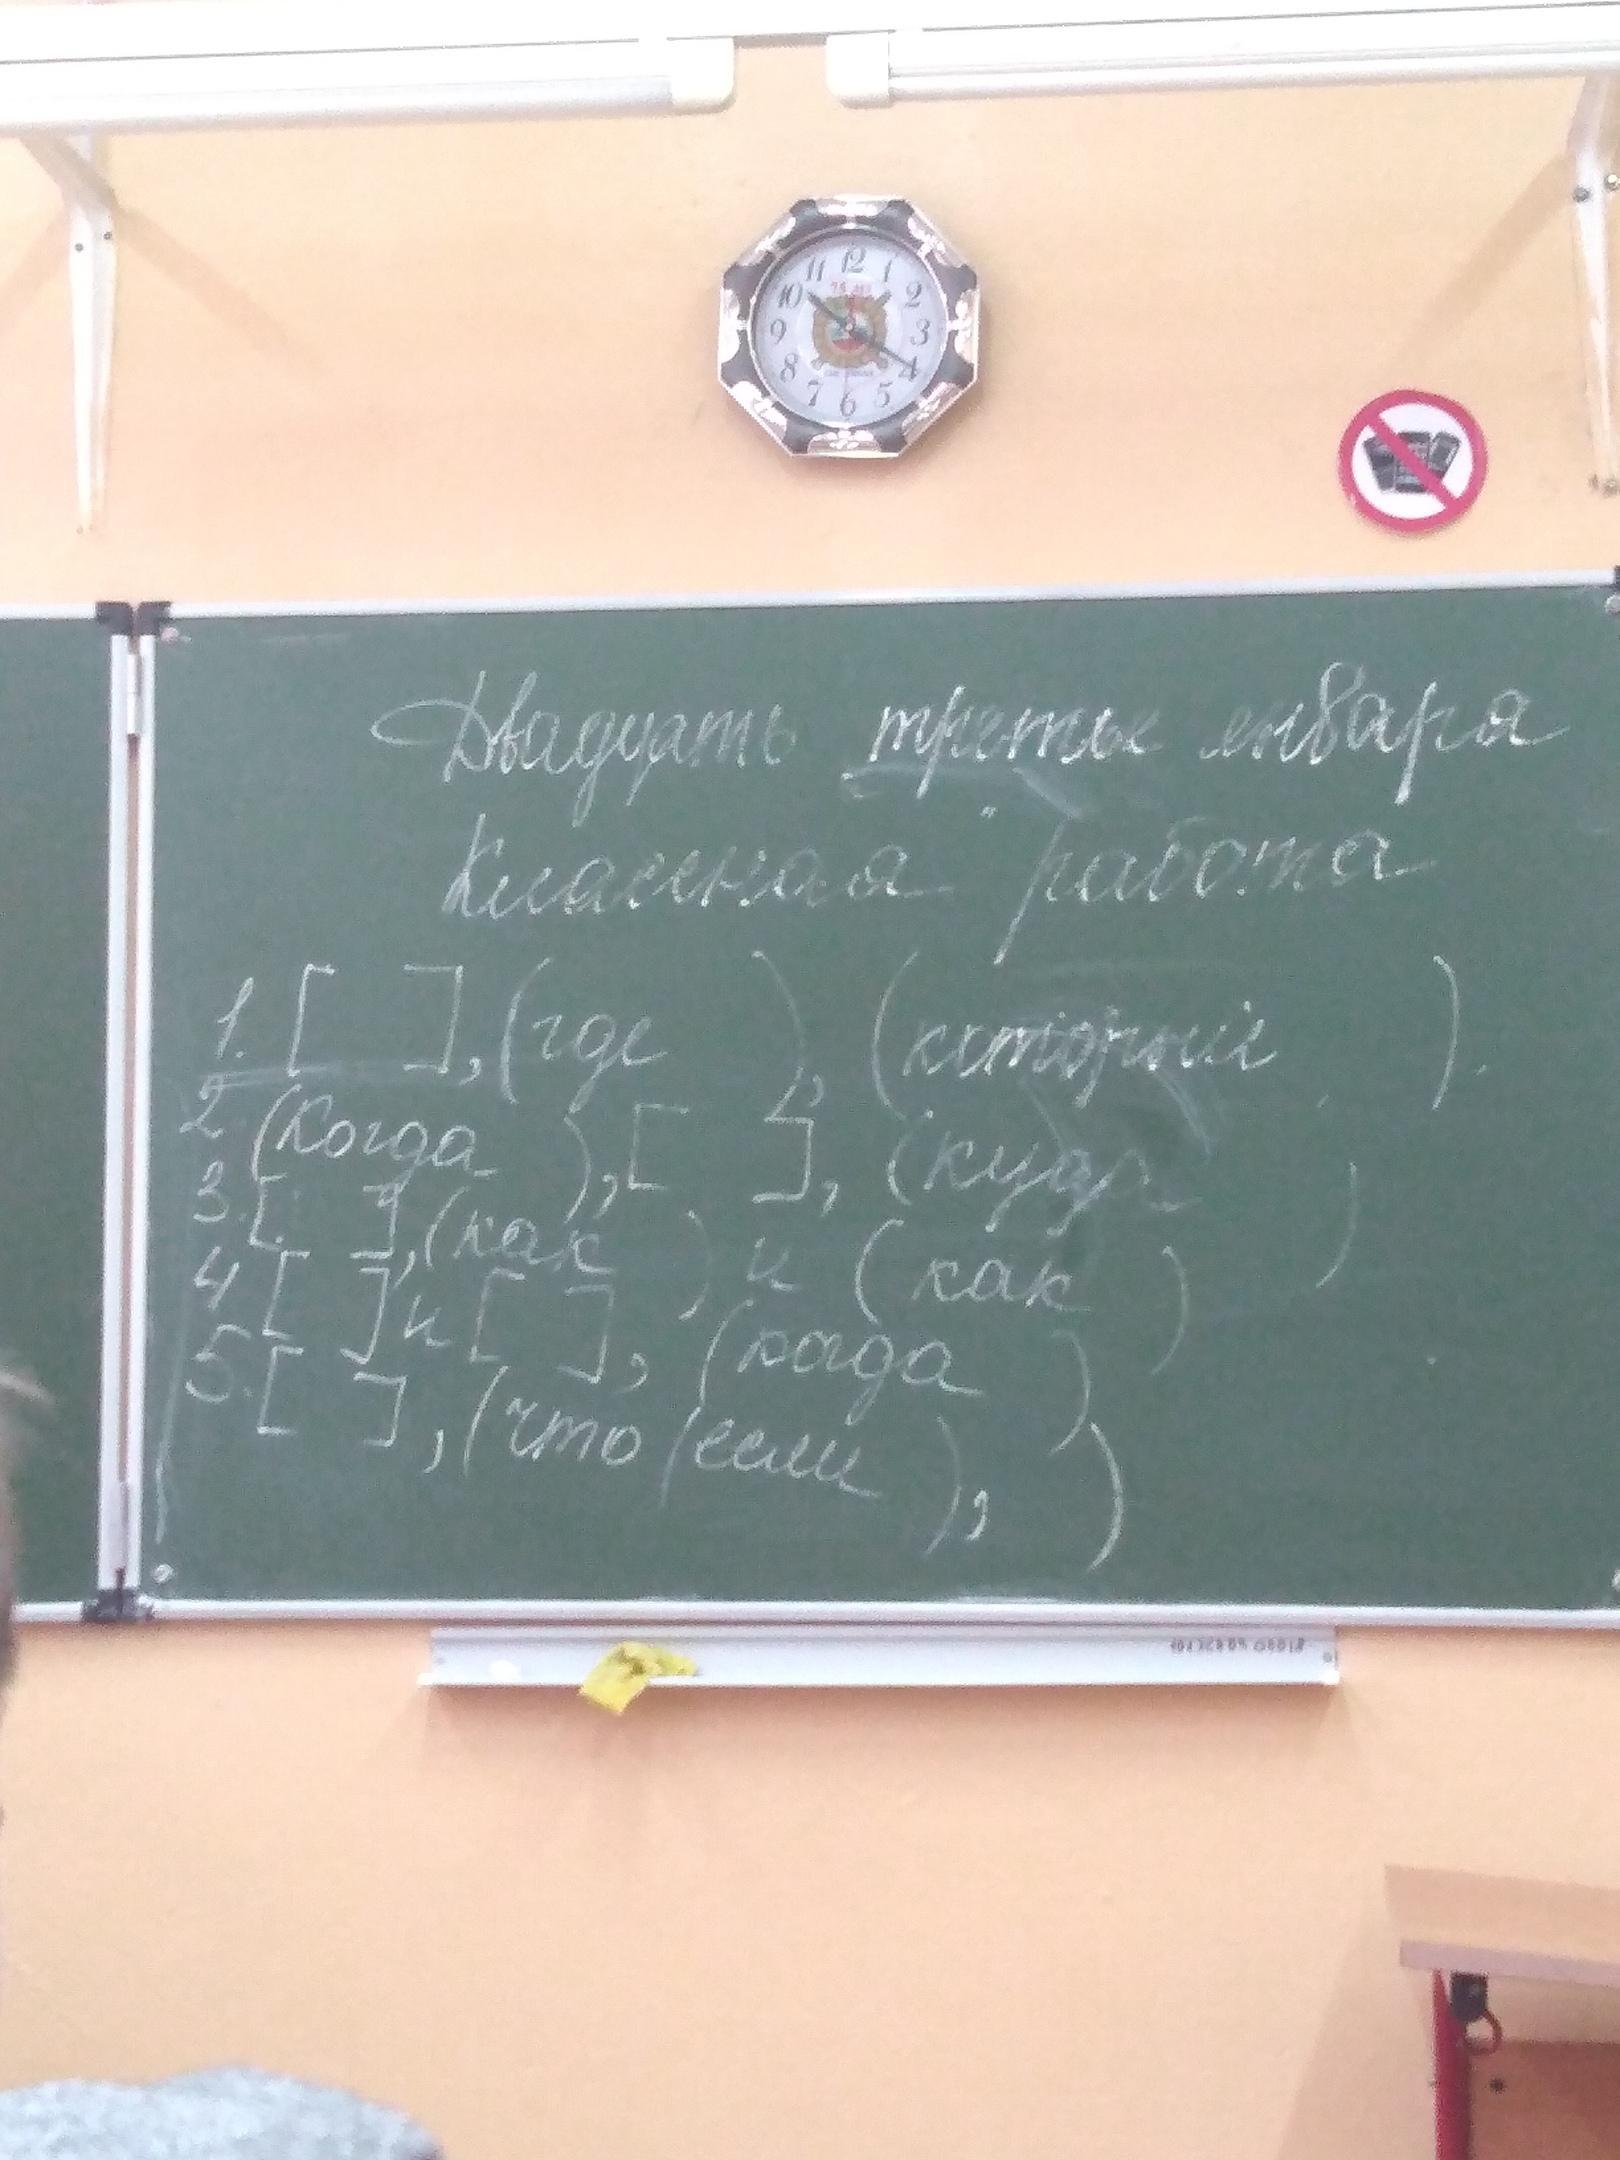 12
11 1
10 2
9 3
8 4
7 5
6
Двадцать третье января
Классная работа
1. [ ], (где ), (который ).
2. (Когда ), [ ], (куда )
3. [ ], (как ) и (как )
4 [ ] и [ ], (когда )
5. [ ], (что (если ), )